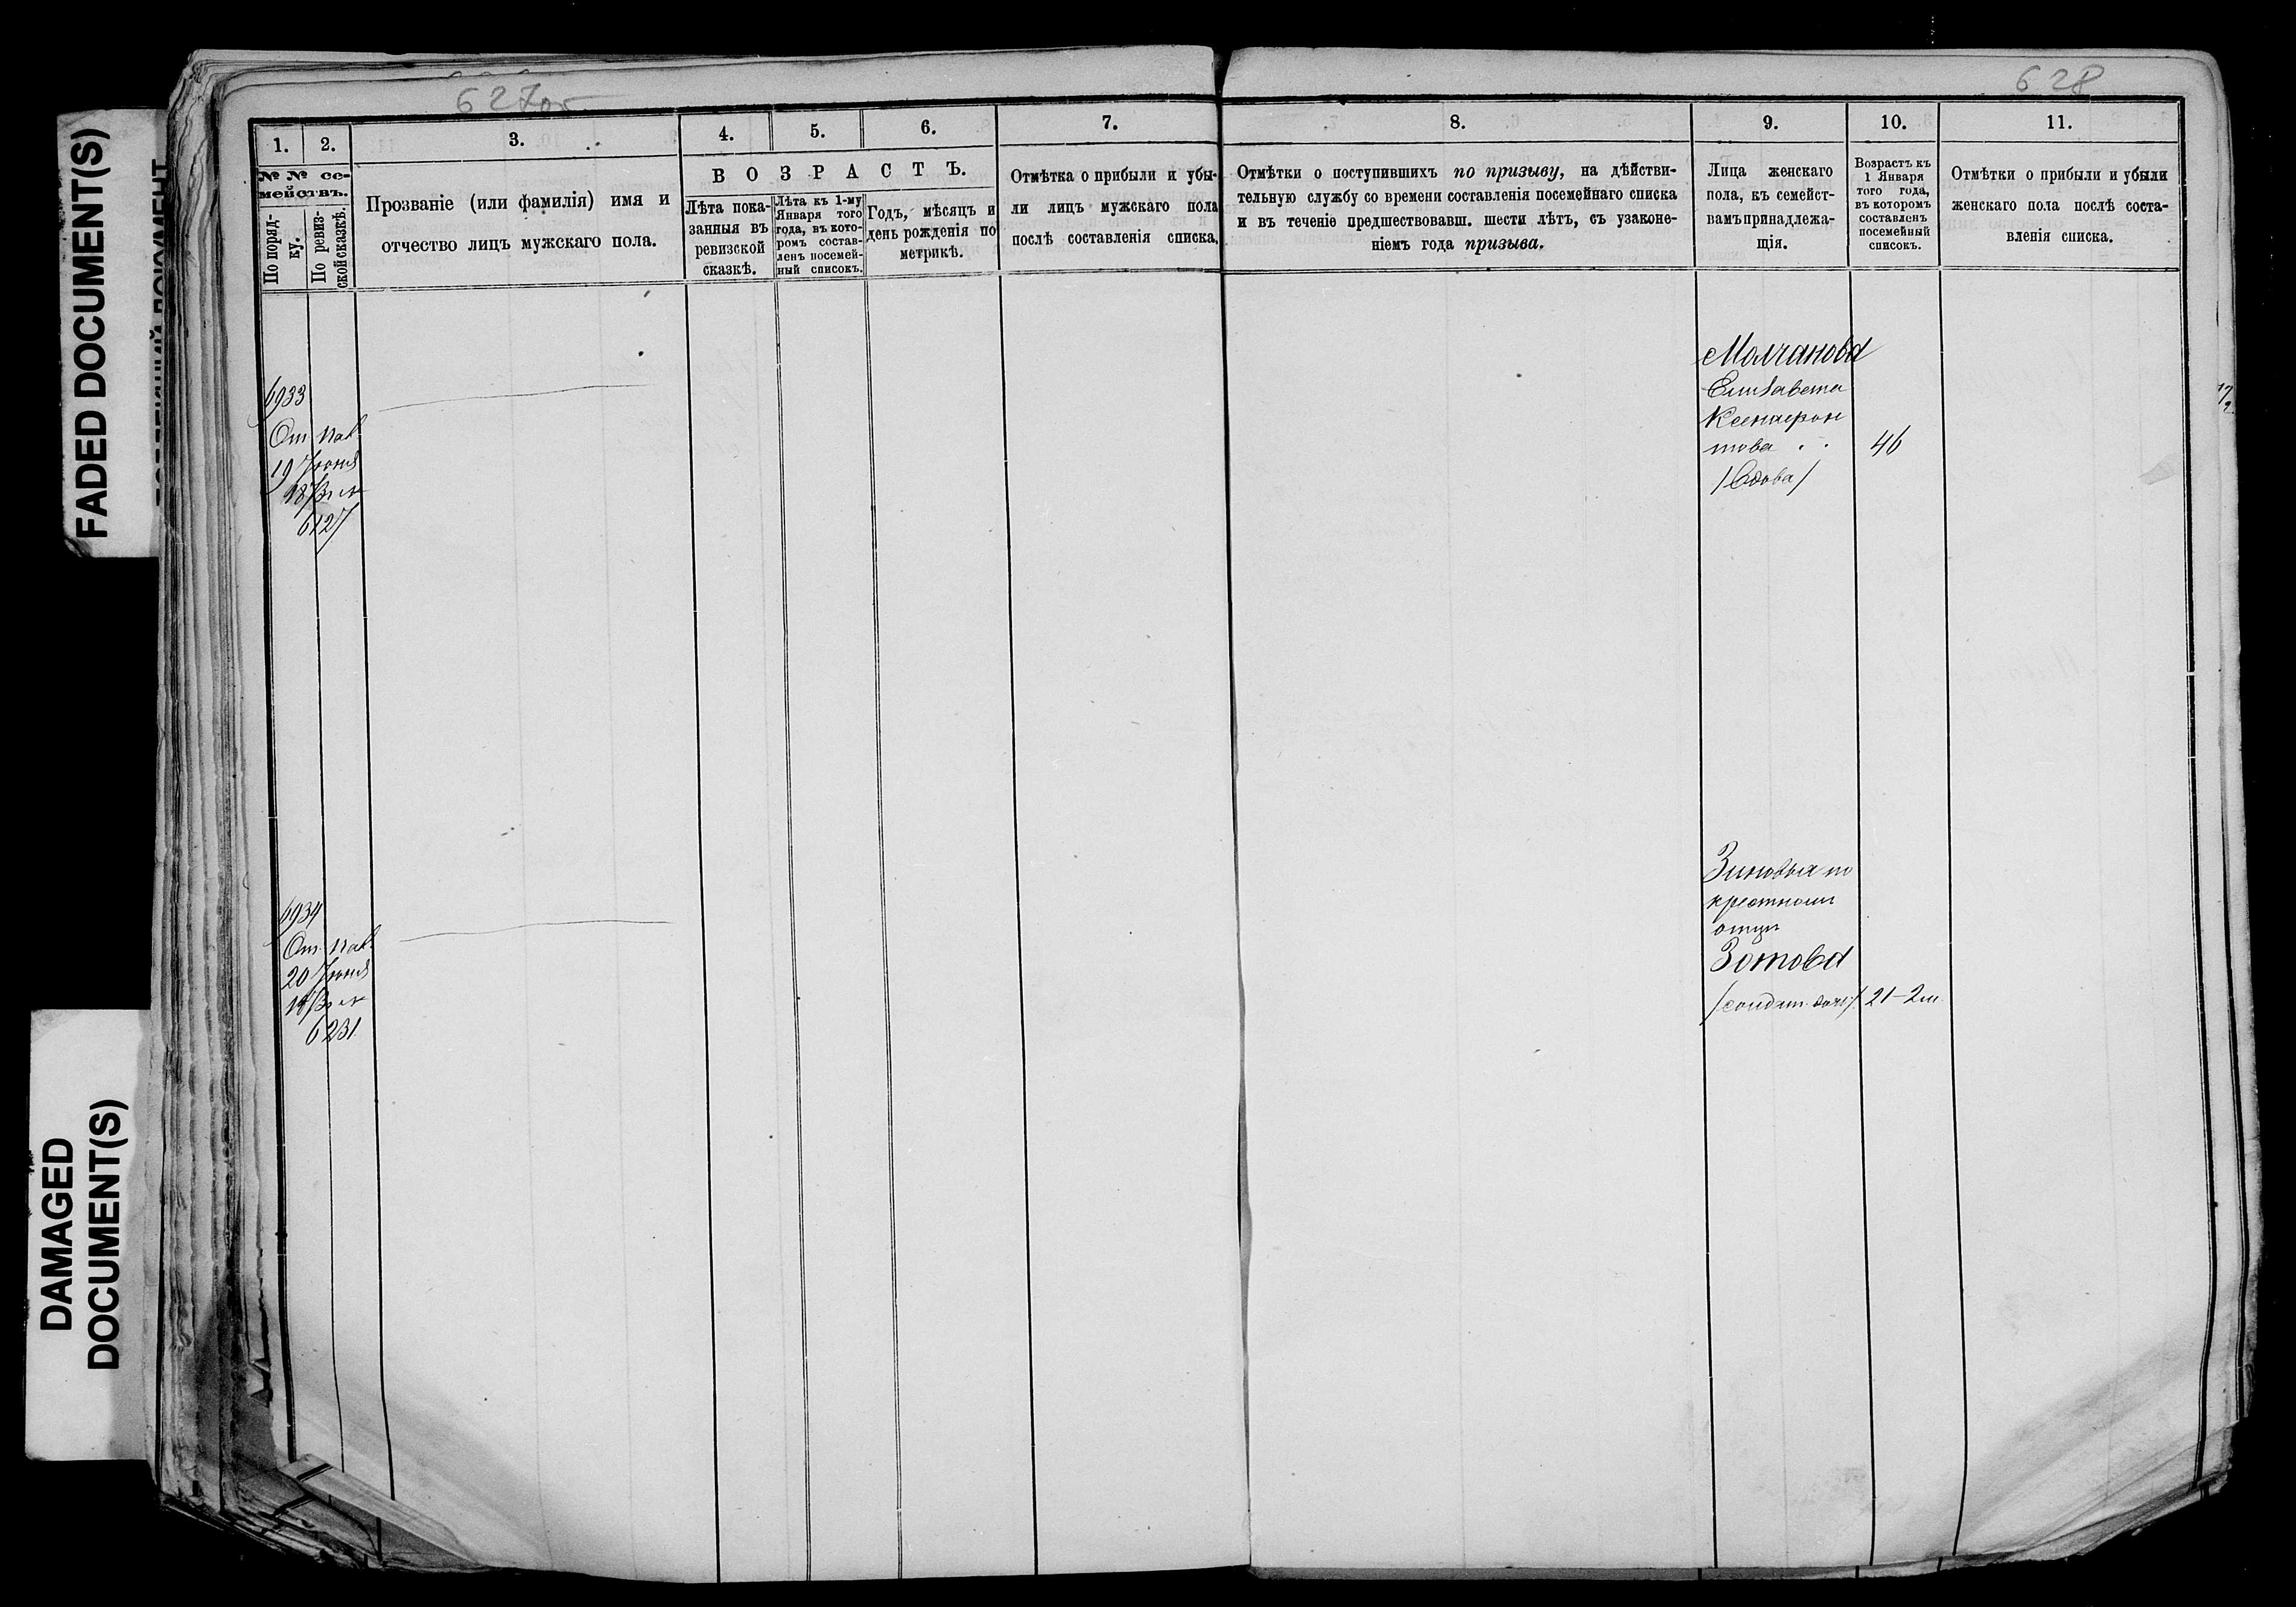 FADED DOCUMENT(S)
DAMAGED
DOCUMENT(S)
627об
628
1.
2.
3.
4.
5.
6.
7.
8.
9.
10.
11.
№ № се-
мействъ.
По поряд-
ку.
По ревиз-
ской сказкѣ.
Прозваніе (или фамилія) имя и
отчество лицъ мужскаго пола.
ВОЗРАСТЪ.
Лѣта пока-
занныя въ
ревизской
сказкѣ.
Лѣта къ 1-му
Января того
года, въ кото-
ромъ состав-
ленъ посемей-
ный списокъ.
Годъ, мѣсяцъ и
день рожденія по
метрикѣ.
Отмѣтка о прибыли и убы-
ли лицъ мужскаго пола
послѣ составленія списка.
Отмѣтки о поступившихъ по призыву, на дѣйстви-
тельную службу со времени составленія посемейнаго списка
и въ теченіе предшествовавш. шести лѣтъ, съ узаконе-
ніемъ года призыва.
Лица женскаго
пола, къ семейст-
вамъ принадлежа-
щія.
Возрастъ къ
1 Января
того года,
въ которомъ
составленъ
посемейный
списокъ.
Отмѣтки о прибыли и убыли
женскаго пола послѣ соста-
вленія списка.
6933
19 Іюня
6127
Молчанова
Елизавета
Ксенофон
това
/Вдова/
46
6934
20 Іюня
6231
Зиновья по
крестному
отцу
Зотова
/солдат. дочь/
21-2 м